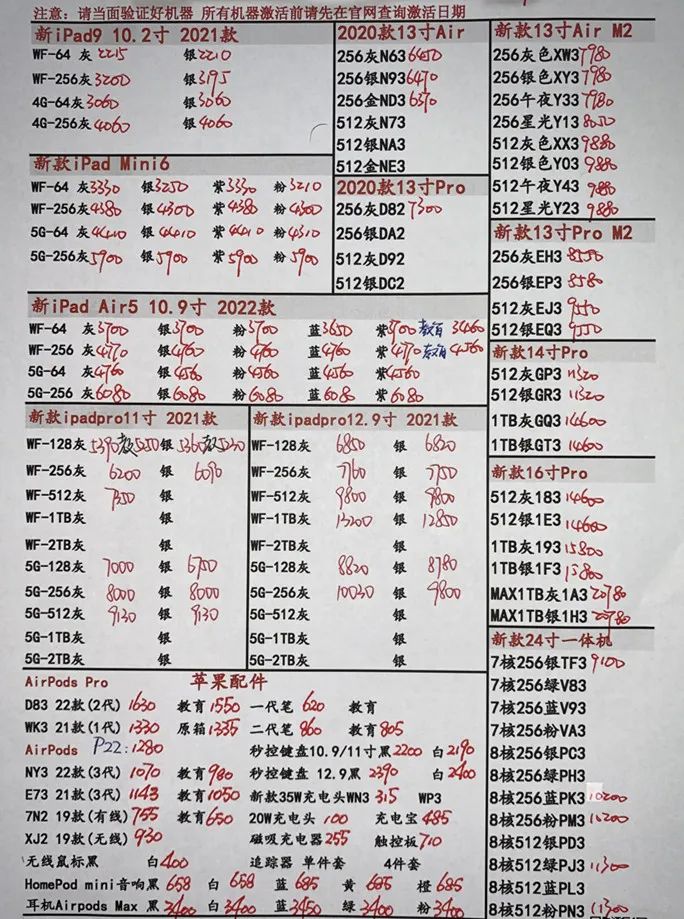 注意: 请当面验证好机器 所有机器激活前请先在官网查询激活日期
新iPad9 10.2寸 2021款
WF-64 灰 2215 银 2210
WF-256灰 3200 银 3195
4G-64灰 3060 银 3060
4G-256灰 4060 银 4060
新款iPad Mini6
WF-64 灰 3330 银 3250 紫 3330 粉 3210
WF-256灰 4380 银 4300 紫 4380 粉 4300
5G-64 灰 4410 银 4410 紫 4410 粉 4310
5G-256灰 5900 银 5900 紫 5900 粉 5900
2020款13寸Air
256灰N63 6450
256银N93 6470
256金ND3 6370
512灰N73
512银NA3
512金NE3
2020款13寸Pro
256灰D82 7300
256银DA2
512灰D92
512银DC2
新iPad Air5 10.9寸 2022款
WF-64 灰 3700 银 3700 粉 3700 蓝 3650 紫 3700 教育 3460
WF-256 灰 4770 银 4760 粉 4760 蓝 4760 紫 4770 教育 4560
5G-64 灰 4760 银 4560 粉 4560 蓝 4560 紫 4560
5G-256 灰 6080 银 6080 粉 6080 蓝 6080 紫 6080
新款ipadpro11寸 2021款
WF-128灰 银
WF-256灰 6200 银 6090
WF-512灰 7350 银
WF-1TB灰 银
WF-2TB灰 银
5G-128灰 7000 银 6750
5G-256灰 8000 银 8000
5G-512灰 9130 银 9130
5G-1TB灰 银
5G-2TB灰 银
新款ipadpro12.9寸 2021款
WF-128灰 6850 银 6820
WF-256灰 7760 银 7750
WF-512灰 9800 银 9800
WF-1TB灰 13200 银 12850
WF-2TB灰 银
5G-128灰 8820 银 8780
5G-256灰 10030 银 9800
5G-512灰 银
5G-1TB灰 银
5G-2TB灰 银
AirPods Pro 苹果配件
D83 22款(2代) 1630 教育 1550 一代笔 620 教育
WK3 21款(1代) 1330 原箱 1335 二代笔 860 教育 805
AirPods P22: 1280 秒控键盘10.9/11寸黑 2200 白 2190
NY3 22款(3代) 1070 教育 980 秒控键盘 12.9黑 2390 白 2400
E73 21款(3代) 1143 教育 1050 新款35W充电头WN3 315 WP3
7N2 19款(有线) 755 教育 650 20W充电头 100 充电宝 485
XJ2 19款(无线) 930 磁吸充电器 255 触控板 710
无线鼠标黑 白 400 追踪器 单件套 4件套
HomePod mini音响黑 658 白 658 蓝 685 黄 685 橙 685
耳机Airpods Max 黑 3400 白 3400 蓝 3450 绿 3400 粉 3400
新款13寸Air M2
256灰色XW3 7980
256银色XY3 7980
256午夜Y33 7980
256星光Y13 8050
512灰色XX3 9880
512银色Y03 9880
512午夜Y43 9880
512星光Y23 9880
新款13寸Pro M2
256灰EH3 8550
256银EP3 8580
512灰EJ3 9550
512银EQ3 9550
新款14寸Pro
512灰GP3 11320
512银GR3 11320
1TB灰GQ3 14600
1TB银GT3 14600
新款16寸Pro
512灰183 14600
512银1E3 14600
1TB灰193 15800
1TB银1F3 15800
MAX1TB灰1A3 20780
MAX1TB银1H3 20780
新款24寸一体机
7核256银TF3 9100
7核256绿V83
7核256蓝V93
7核256粉VA3
8核256银PC3
8核256绿PH3
8核256蓝PK3 10200
8核256粉PM3 10200
8核512银PD3
8核512绿PJ3 11300
8核512蓝PL3
8核512粉PN3 11300